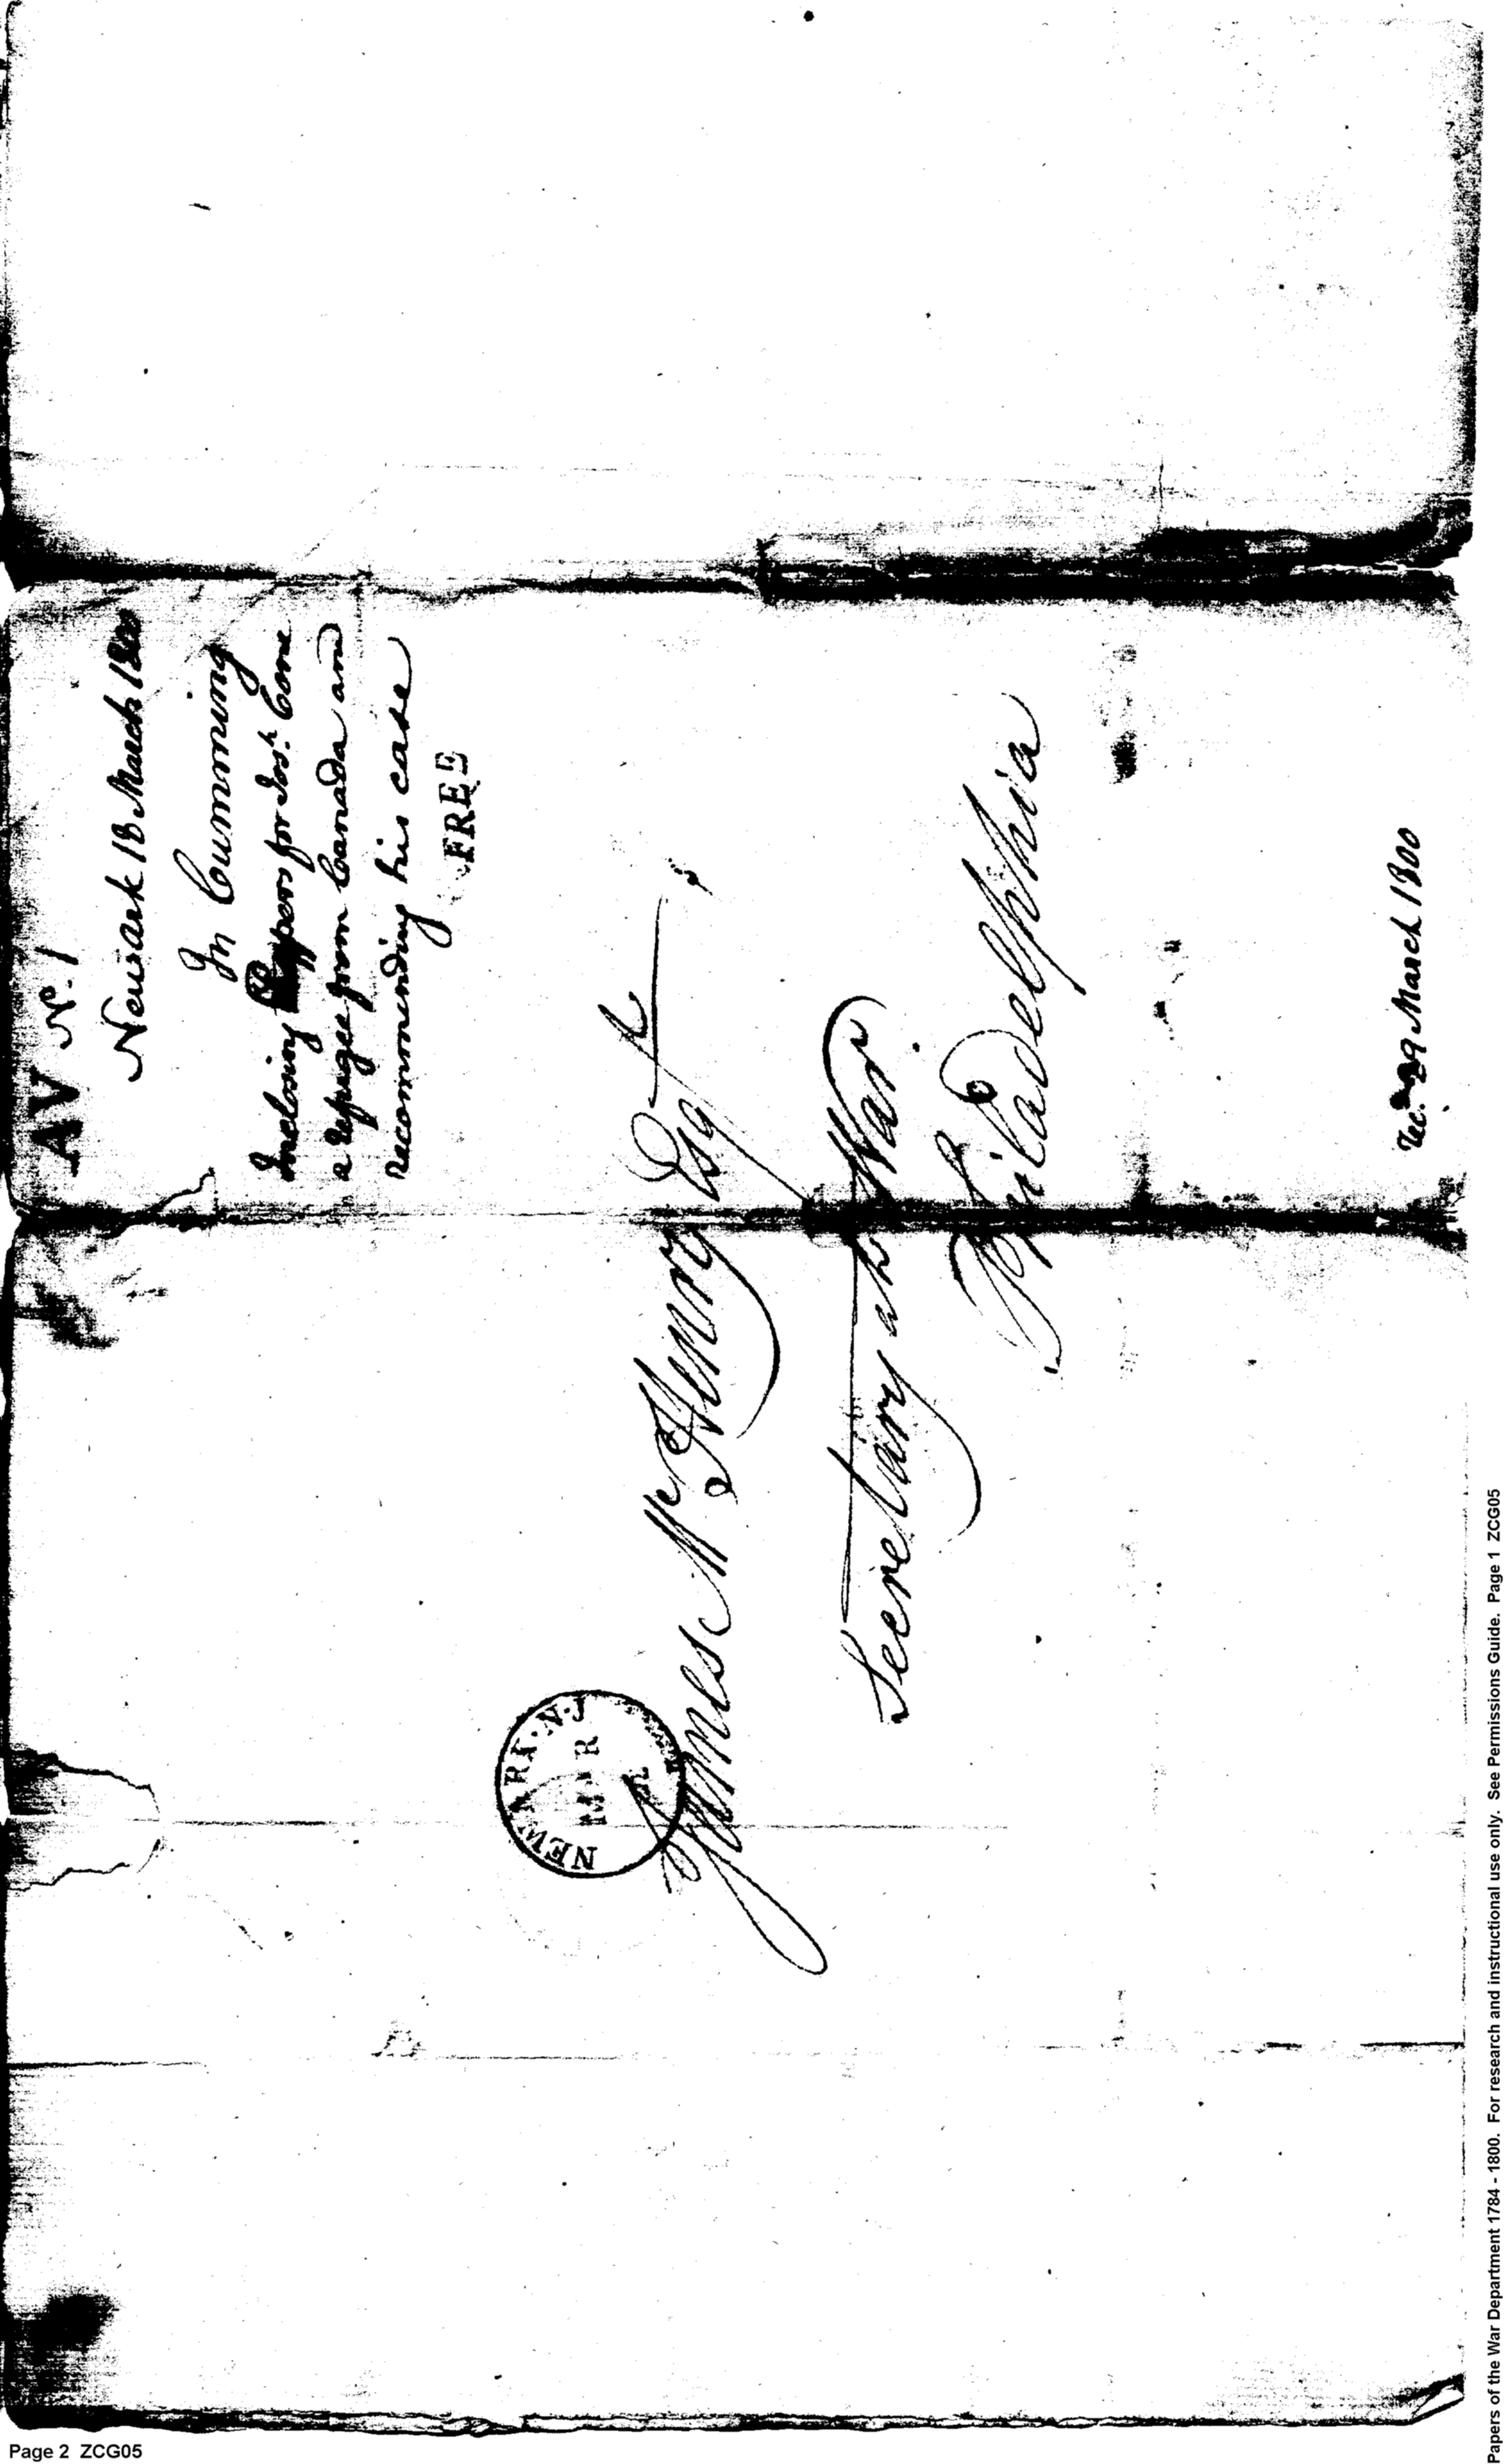 AV No. 1
Newark 18 March 1800
Jn Cumming
Inclosing Papers for Josh. Cone
a refugee from Canada and
recommending his case
FREE
NEWARK. N.J
MAR
James McHenry Esqr
Secretary at War
Philadelphia
Rec. 29 March 1800
Papers of the War Department 1784 - 1800. For research and instructional use only. See Permissions Guide. Page 1 ZCG05
Page 2 ZCG05